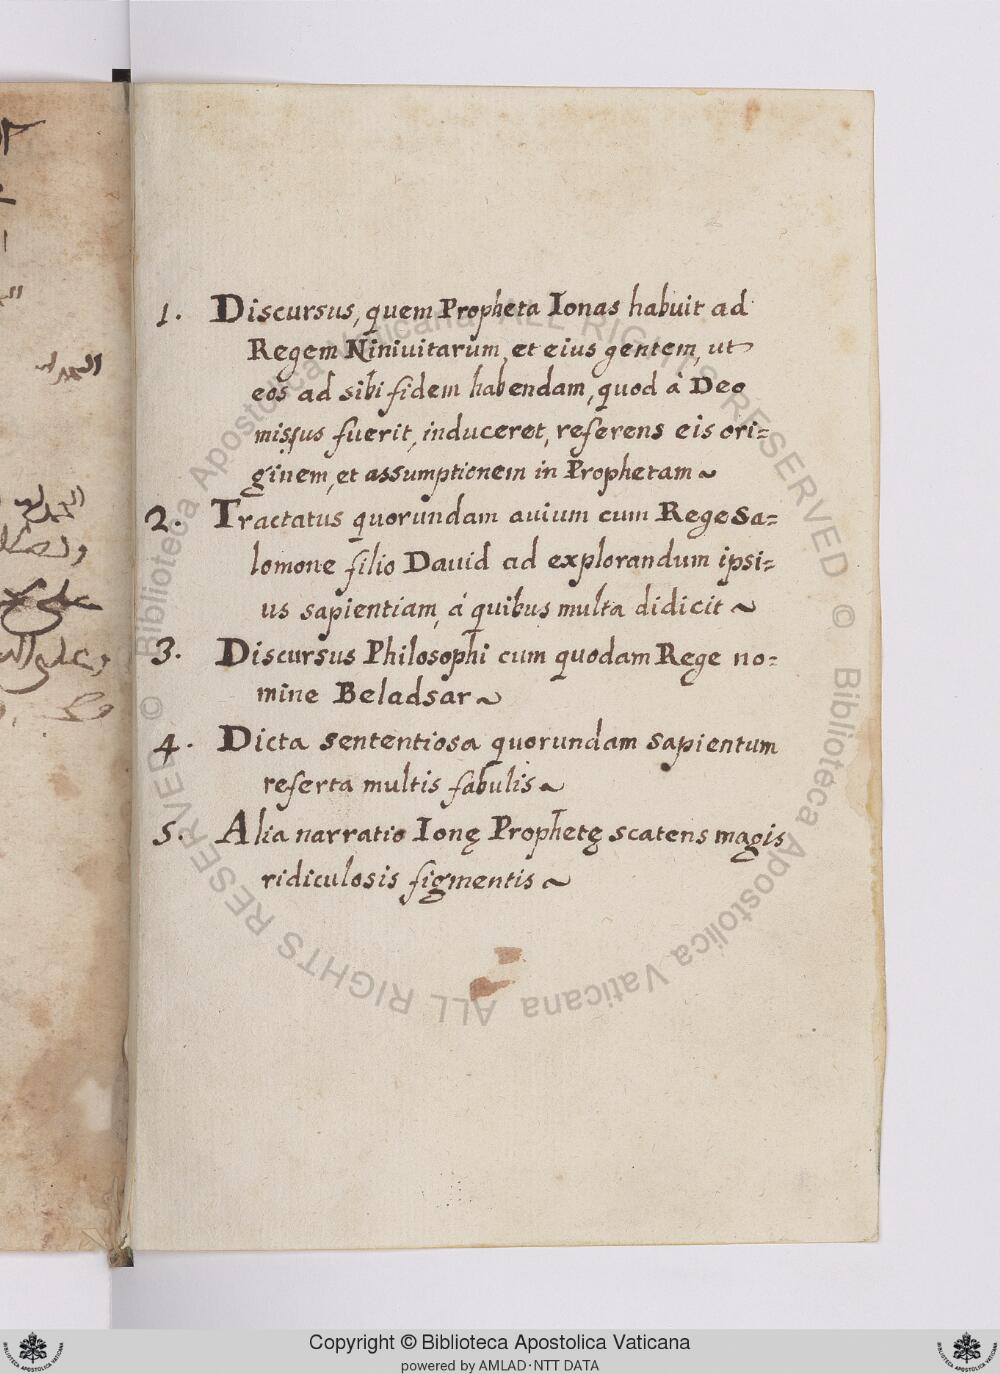 1. Discursus, quem Propheta Ionas habuit ad
Regem Niniuitarum, et eius gentem, ut
eos ad sibi fidem habendam, quod à Deo
missus fuerit, induceret, referens eis ori=
ginem, et assumptionem in Prophetam ~
2. Tractatus quorundam auium cum Rege Sa=
lomone filio Dauid ad explorandum ipsi=
us sapientiam, á quibus multa didicit ~
3. Discursus Philosophi cum quodam Rege no=
mine Beladsar ~
4. Dicta sententiosa quorundam sapientum
referta multis fabulis ~
5. Alia narratio Ionę Prophetę scatens magis
ridiculosis figmentis ~
Copyright © Biblioteca Apostolica Vaticana
powered by AMLAD·NTT DATA